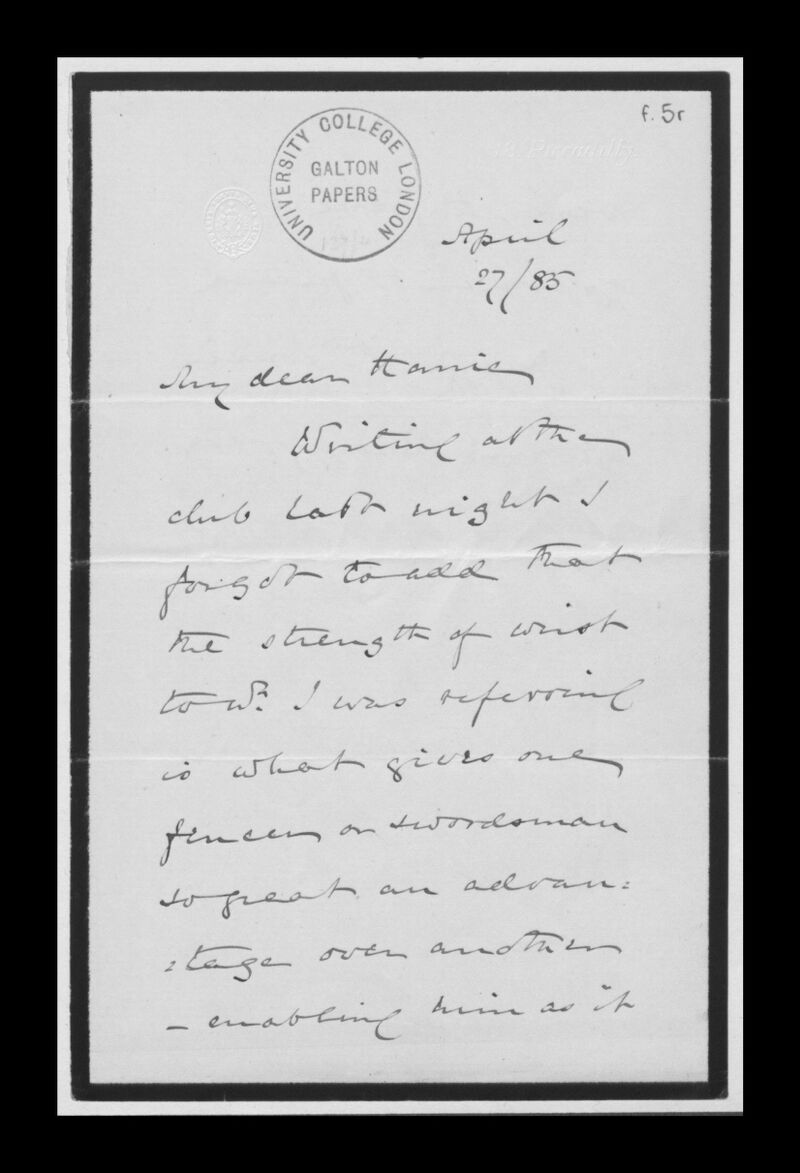 f. 5r
UNIVERSITY COLLEGE LONDON
GALTON
PAPERS
Piccadilly
April
27/85
My dear
Writing at the
club last night I
forgot to add that
the strength of wrist
to wh. I was referring
is what gives one
fencer or swordsman
so great an advan:
:tage over another
– enabling him as it